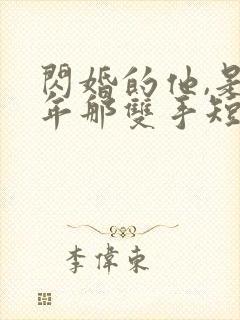 閃婚的他,是
年那雙手短
李偉東